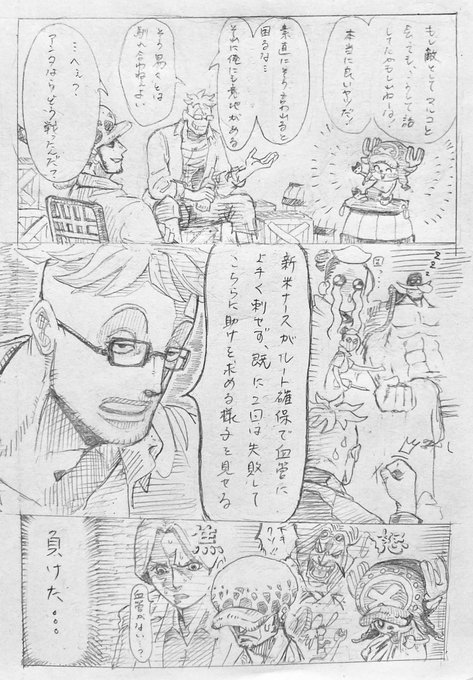 もし敵としてマルコと
会っても、こうして話
してたかもしれねーな!
本当に良いヤツだ!
素直にそう言われると
困るな…
それに俺にも意地がある
そう易々とは
馴れ合わねぇよい
…へぇ?
アンタならどう戦ったんだ?
zzz
新米ナースがルート確保で血管に
上手く刺せず、既に2回は失敗して
こちらに助けを求める様子を見せる
悲
ドキ
クソ!!
焦
血管がない…?
負けた…。